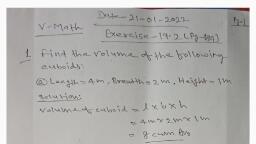 Date-21-01-2022
Pg-1
V-Math
Exercise-19.2 (Pg-
1 Find the volume of the following
cuboids:
(a) Length = 4m, Breadth = 2m, Height = 1m
Solution:
Volume of cuboid = l x b x h
= 4m x 2m x 1m
= 8 cum Ans